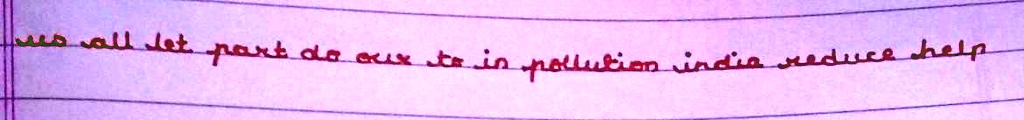 us all let part do our to in pollution india reduce help